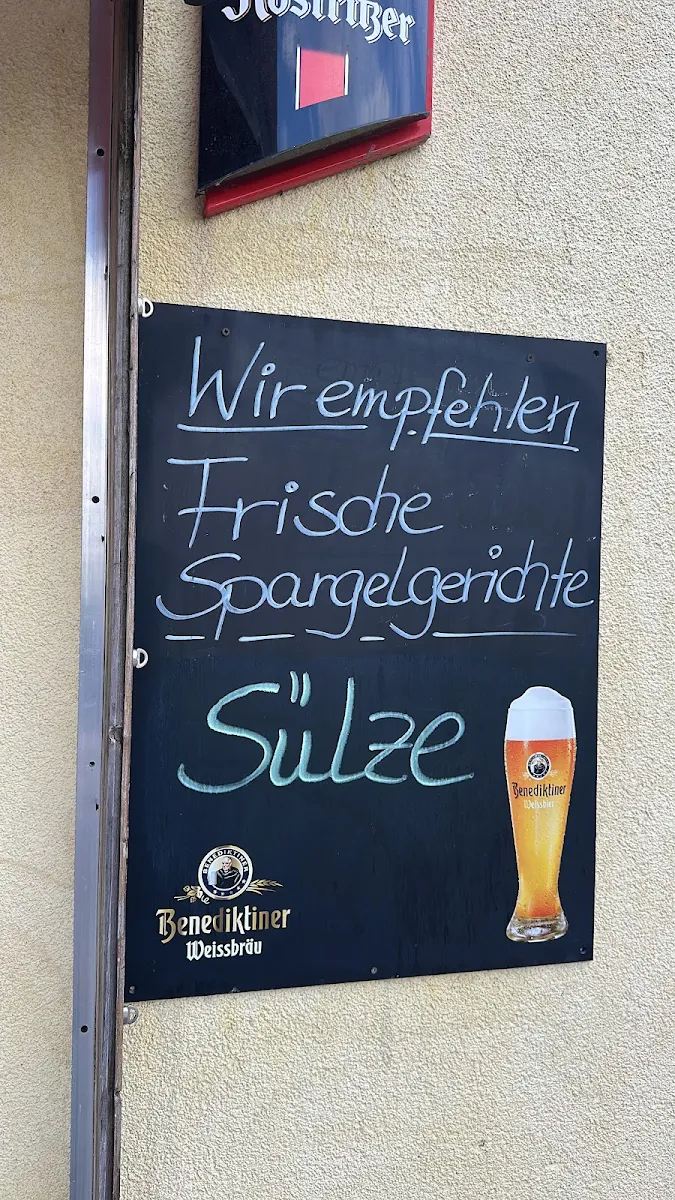 Köstritzer
Wir empfehlen
Frische
Spargelgerichte
Sülze
Benediktiner
Weissbier
BENEDIKTINER
Benediktiner
Weissbräu